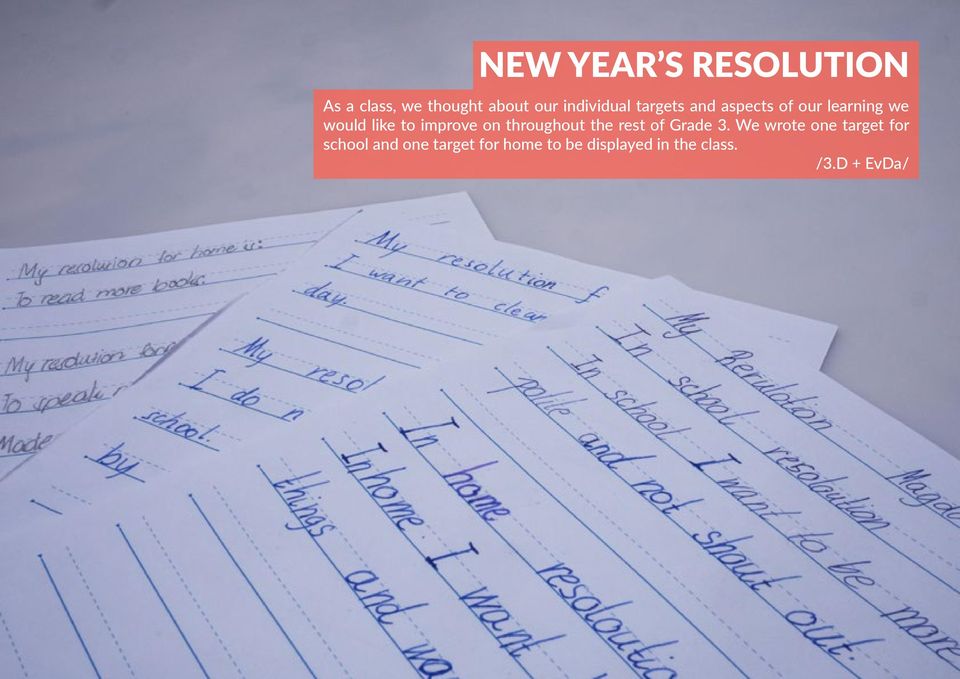 NEW YEAR’S RESOLUTION
As a class, we thought about our individual targets and aspects of our learning we
would like to improve on throughout the rest of Grade 3. We wrote one target for
school and one target for home to be displayed in the class.
/3.D + EvDa/
My resolution for home is:
To read more books.
My resolution for
To speak
Made
My resolution f
I want to clean
day.
My resol
I do n
school.
by
My Rerulotion Magd
In school resolaution
In school I want to be more
polite and not shout out.
In home resoloutio
In home I want
things and wa